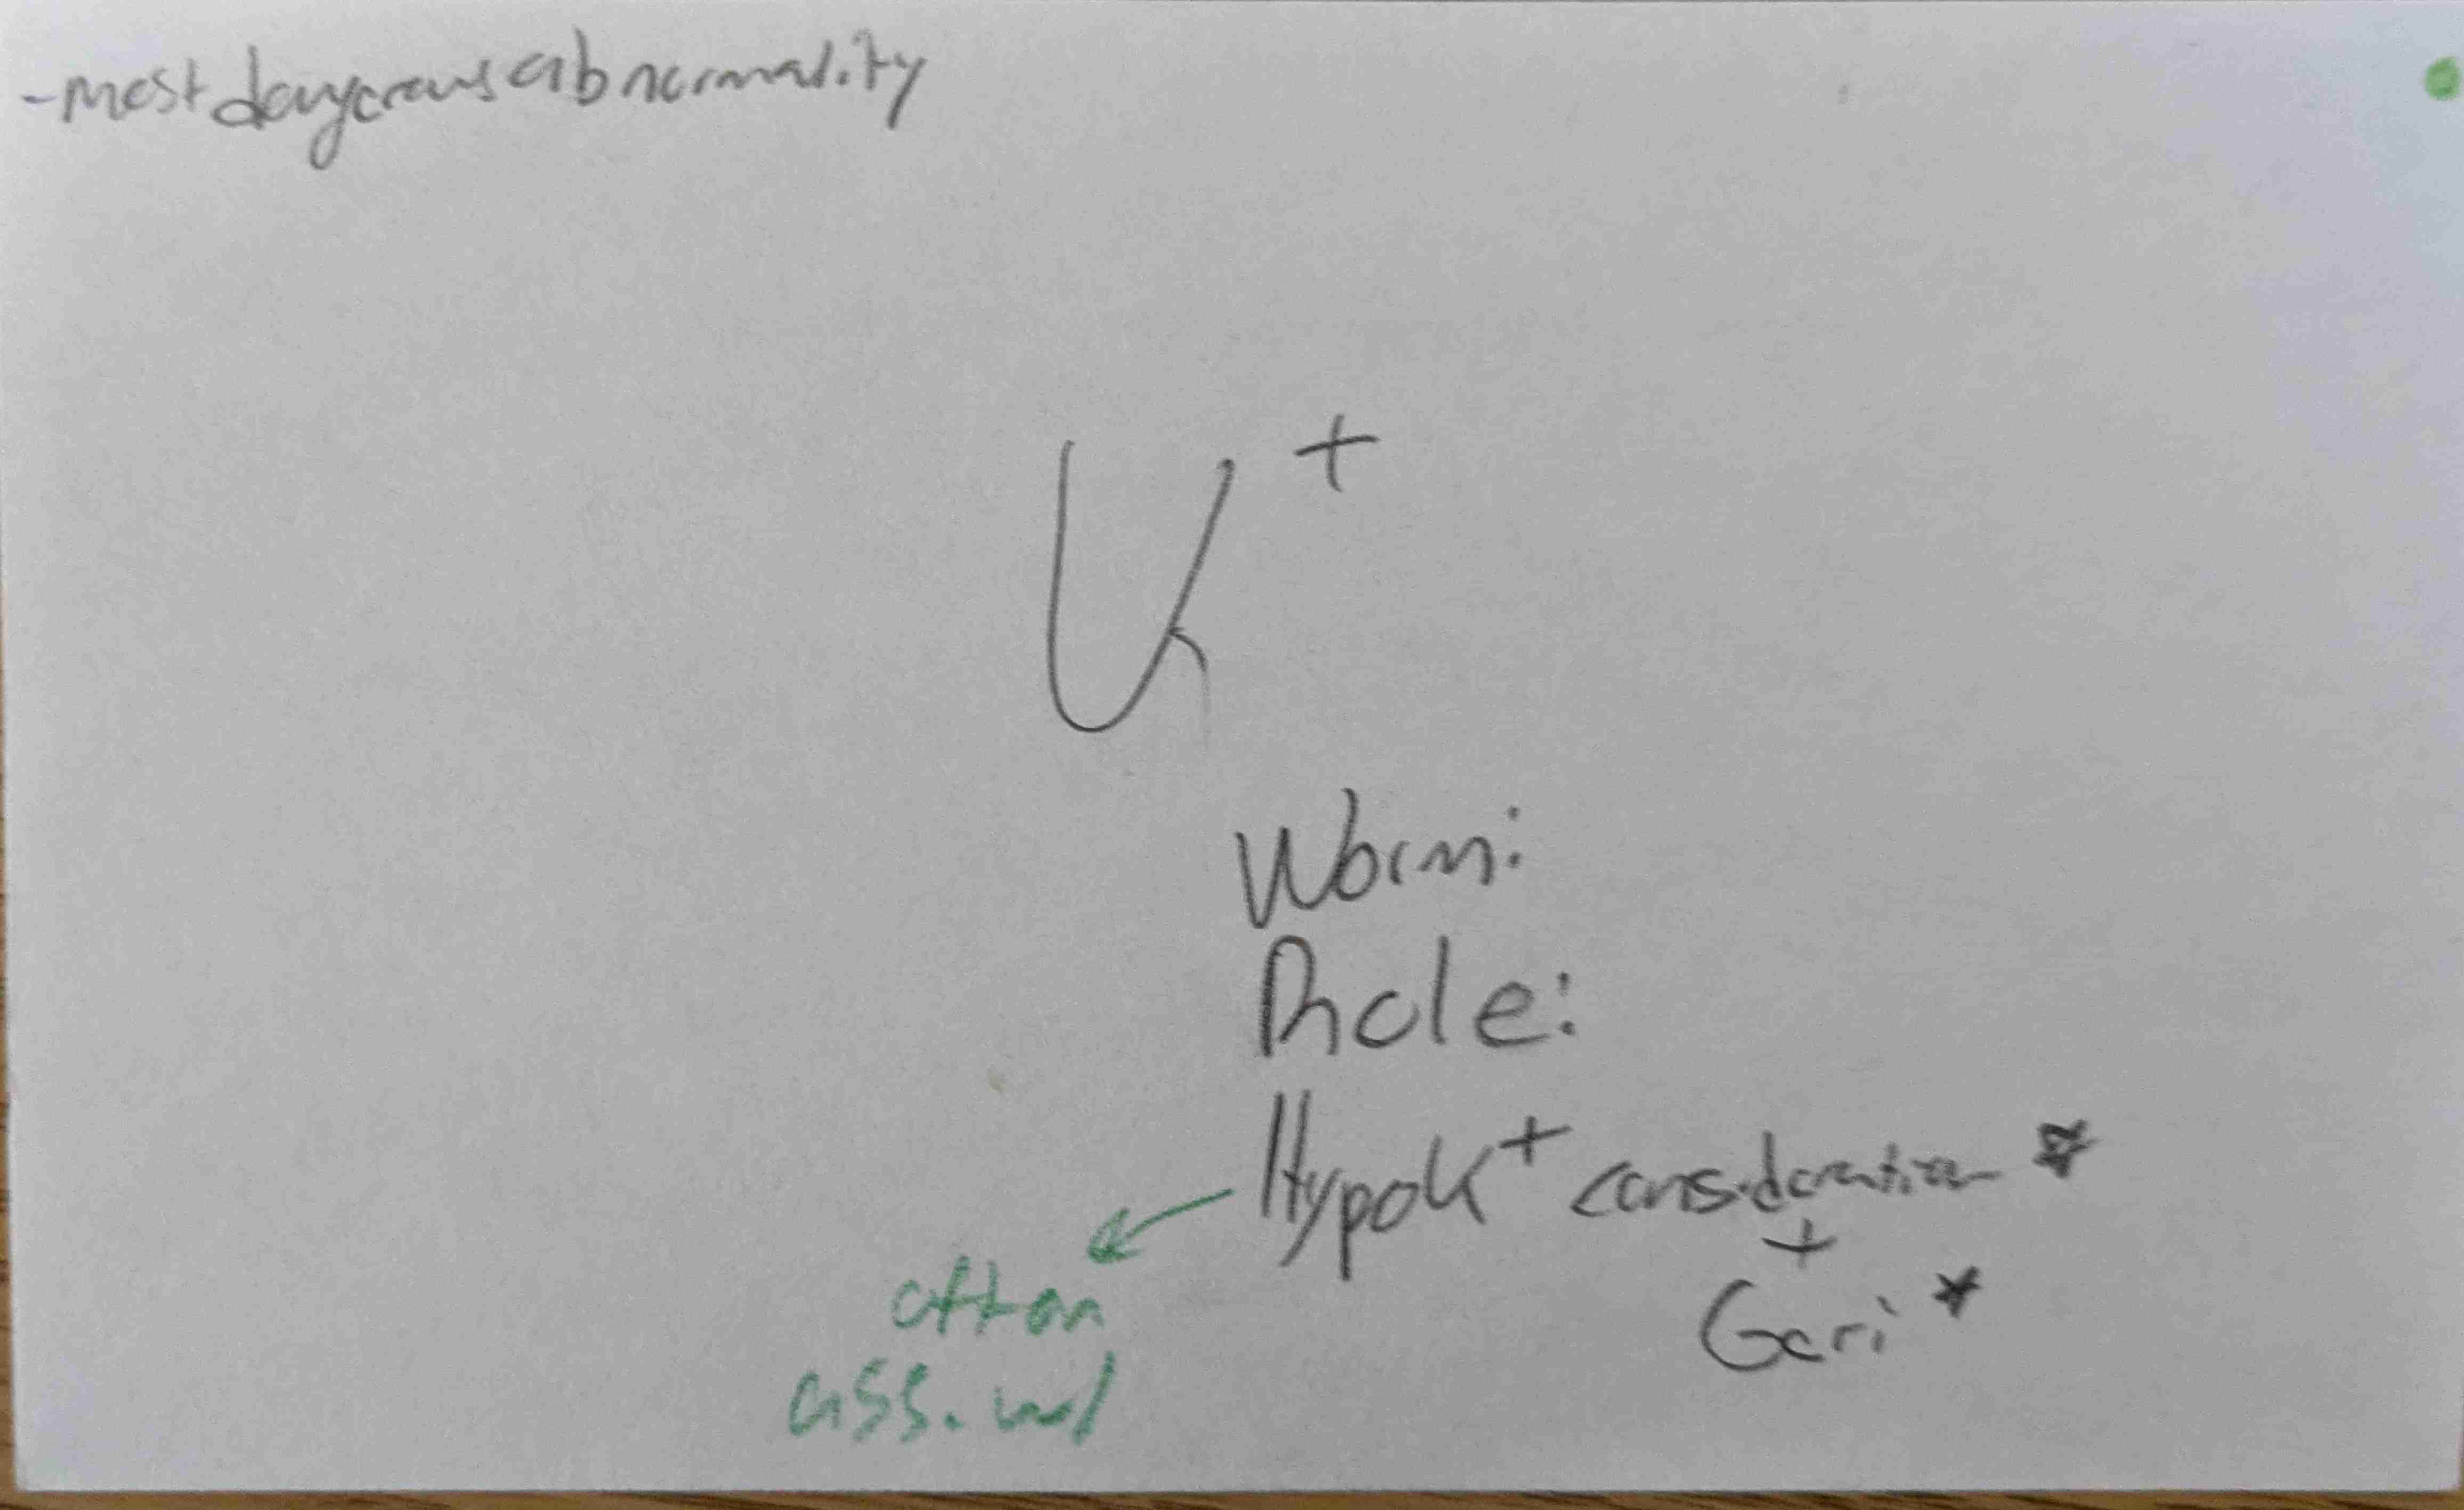 - most dangerous abnormality
K+
Norm:
Role:
HypoK+ consideration *
+
Geri *
often
ass. w/